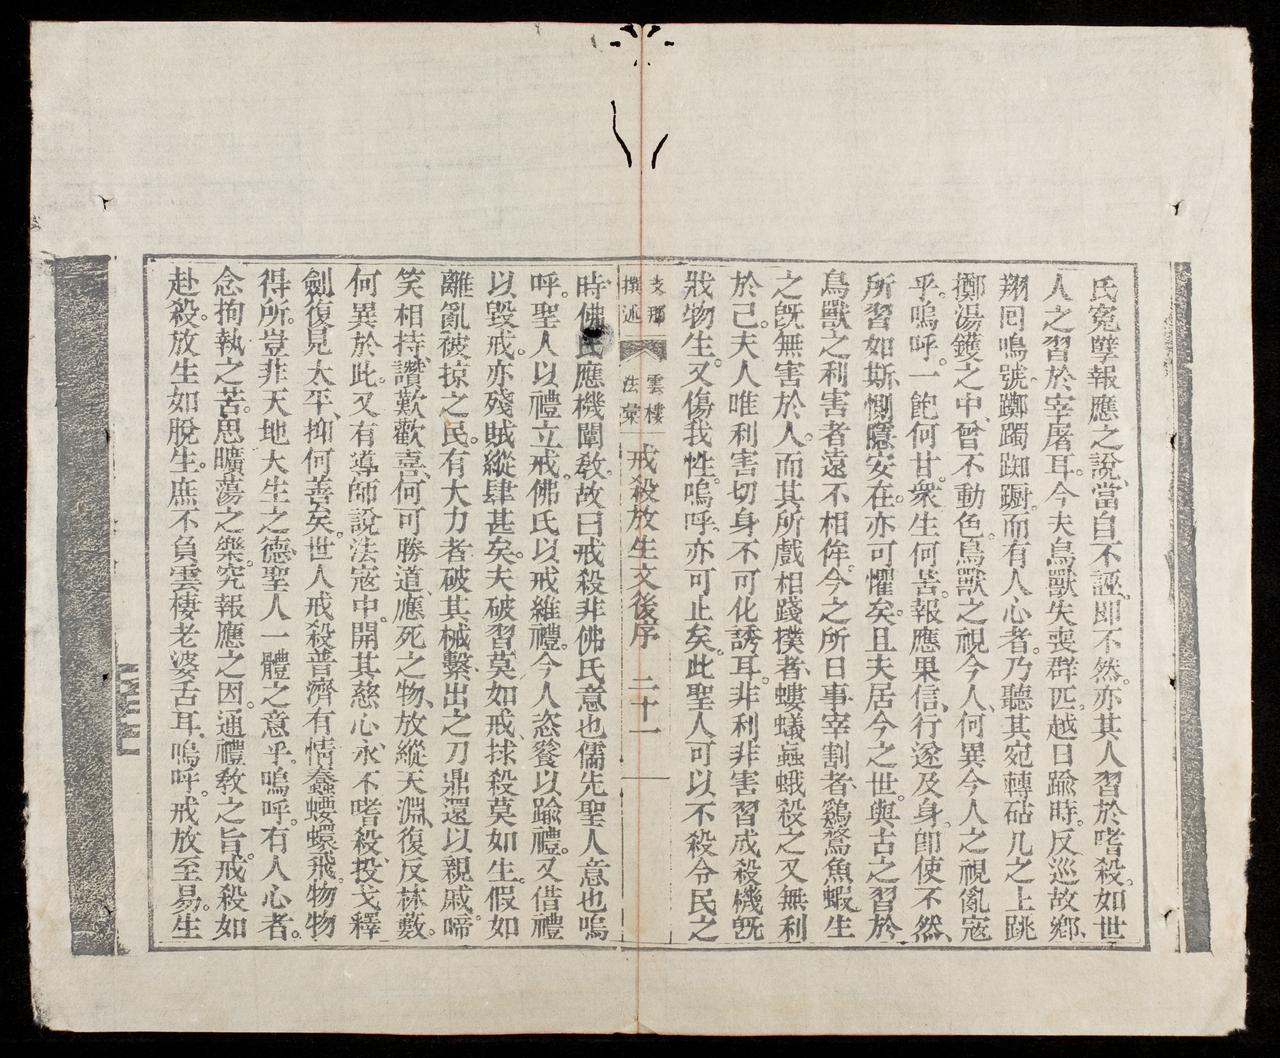 氏寃孽報應之說當自不誣卽不然亦其人習於嗜殺如世
人之習於宰屠耳今夫鳥獸失喪群匹越日踰時反巡故鄉
翔回鳴號躑躅踟躕而有人心者乃聽其宛轉砧几之上跳
擲湯鑊之中曾不動色鳥獸之視今人何異今人之視亂寇
乎嗚呼一飽何甘衆生何苦報應果信行遂及身卽使不然
所習如斯惻隱安在亦可懼矣且夫居今之世與古之習於
鳥獸之利害者遠不相侔今之所日事宰割者鷄鶩魚蝦生
之旣無害於人而其所戲相踐撲者螻蟻蝨蛾殺之又無利
於己夫人唯利害切身不可化誘耳非利非害習成殺機旣
戕物生又傷我性嗚呼亦可止矣此聖人可以不殺令民之
支那撰述 雲棲法彙 戒殺放生文後序 二十一
時佛氏應機闡敎故曰戒殺非佛氏意也儒先聖人意也嗚
呼聖人以禮立戒佛氏以戒維禮今人恣饕以踰禮又借禮
以毀戒亦殘賊縱肆甚矣夫破習莫如戒捄殺莫如生假如
離亂被掠之民有大力者破其械繫出之刀鼎還以親戚啼
笑相持讚歎歡喜何可勝道應死之物放縱天淵復反林藪
何異於此又有導師說法寇中開其慈心永不嗜殺投戈釋
劍復見太平抑何善矣世人戒殺普濟有情蠢蝡蠉飛物物
得所豈非天地大生之德聖人一體之意乎嗚呼有人心者
念拘執之苦思曠蕩之樂究報應之因通禮敎之旨戒殺如
赴殺放生如脫生庶不負雲棲老婆舌耳嗚呼戒放至易生